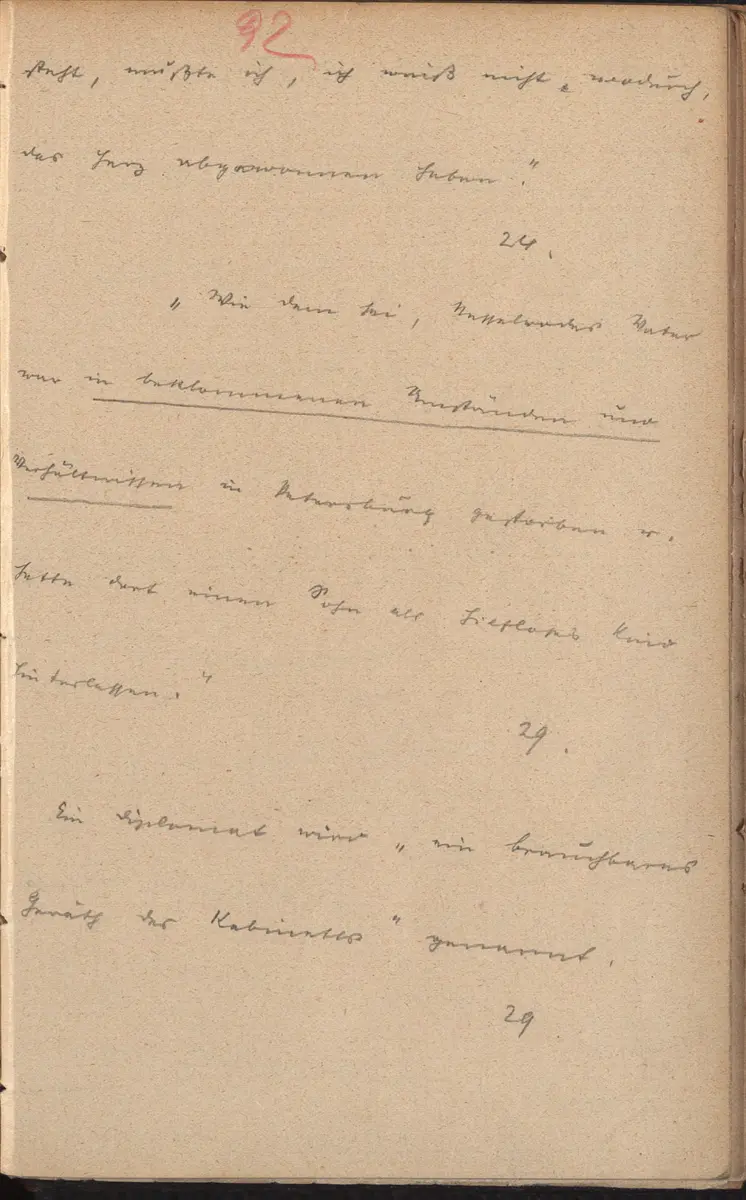 92
steht, mußte ich, ich weiß nicht, wodurch,
das Herz abgewonnen haben."
24.
„Wie dem sei, Nesselrodes Vater
war in beklommenen Umständen und
Verhältnissen in Petersburg gestorben u.
hatte dort einen Sohn als hilfloses Kind
hinterlassen."
29.
Ein Diplomat wird „ein brauchbares
Geräth des Kabinetts" genannt.
29